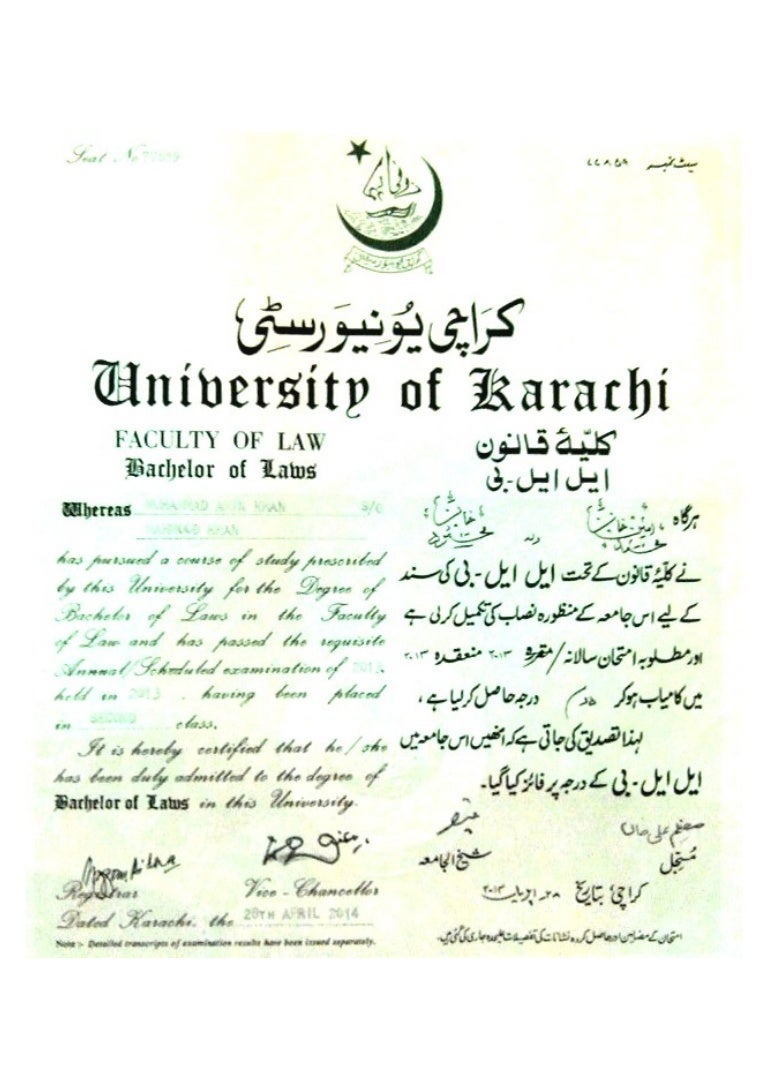 Seat No 77859
سیٹ نمبر ۷۷۸۵۹
کراچی یونیورسٹی
کَراچی یُونِیوَرسٹِی
University of Karachi
FACULTY OF LAW
Bachelor of Laws
Whereas MUHAMMAD AMIN KHAN S/O
MAHMOOD KHAN
has pursued a course of study prescribed
by this University for the Degree of
Bachelor of Laws in the Faculty
of Law and has passed the requisite
Annual/Scheduled examination of 2013
held in 2013 , having been placed
in SECOND class.
It is hereby certified that he/she
has been duly admitted to the degree of
Bachelor of Laws in this University.
Registrar
Vice-Chancellor
Dated Karachi, the 28TH APRIL 2014
Note :- Detailed transcripts of examination results have been issued separately.
کلیّۂ قانون
ایل ایل۔بی
ہرگاہ محمد امین خان ولد محمود خان
نے کلیّۂ قانون کے تحت ایل ایل۔بی کی سند
کے لیے اس جامعہ کے منظورہ نصاب کی تکمیل کرلی ہے
اور مطلوبہ امتحان سالانہ/مقررہ ۲۰۱۳ منعقدہ ۲۰۱۳
میں کامیاب ہوکر دوم درجہ حاصل کرلیا ہے،
لہذا تصدیق کی جاتی ہے کہ انھیں اس جامعہ میں
ایل ایل۔بی کے درجہ پر فائز کیا گیا۔
معظم علی خاں
مُسَجِّل
قیصر
شیخ الجامعہ
کراچی بتاریخ ۲۸؍ اپریل ۲۰۱۴
امتحان کے مضامین اور حاصل کردہ نشانات کی تفصیلات علیحدہ جاری کی گئی ہیں۔